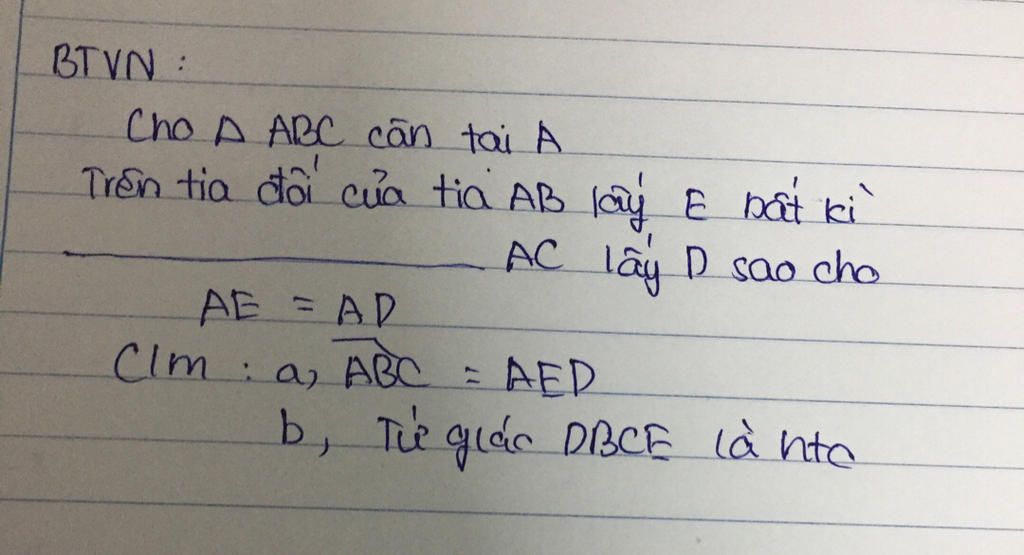 BTVN :
Cho Δ ABC cân tại A
Trên tia đối của tia AB lấy E bất kì
———————— AC lấy D sao cho
AE = AD
C/m : a, ABC = AED
b, Tứ giác DBCE là htc